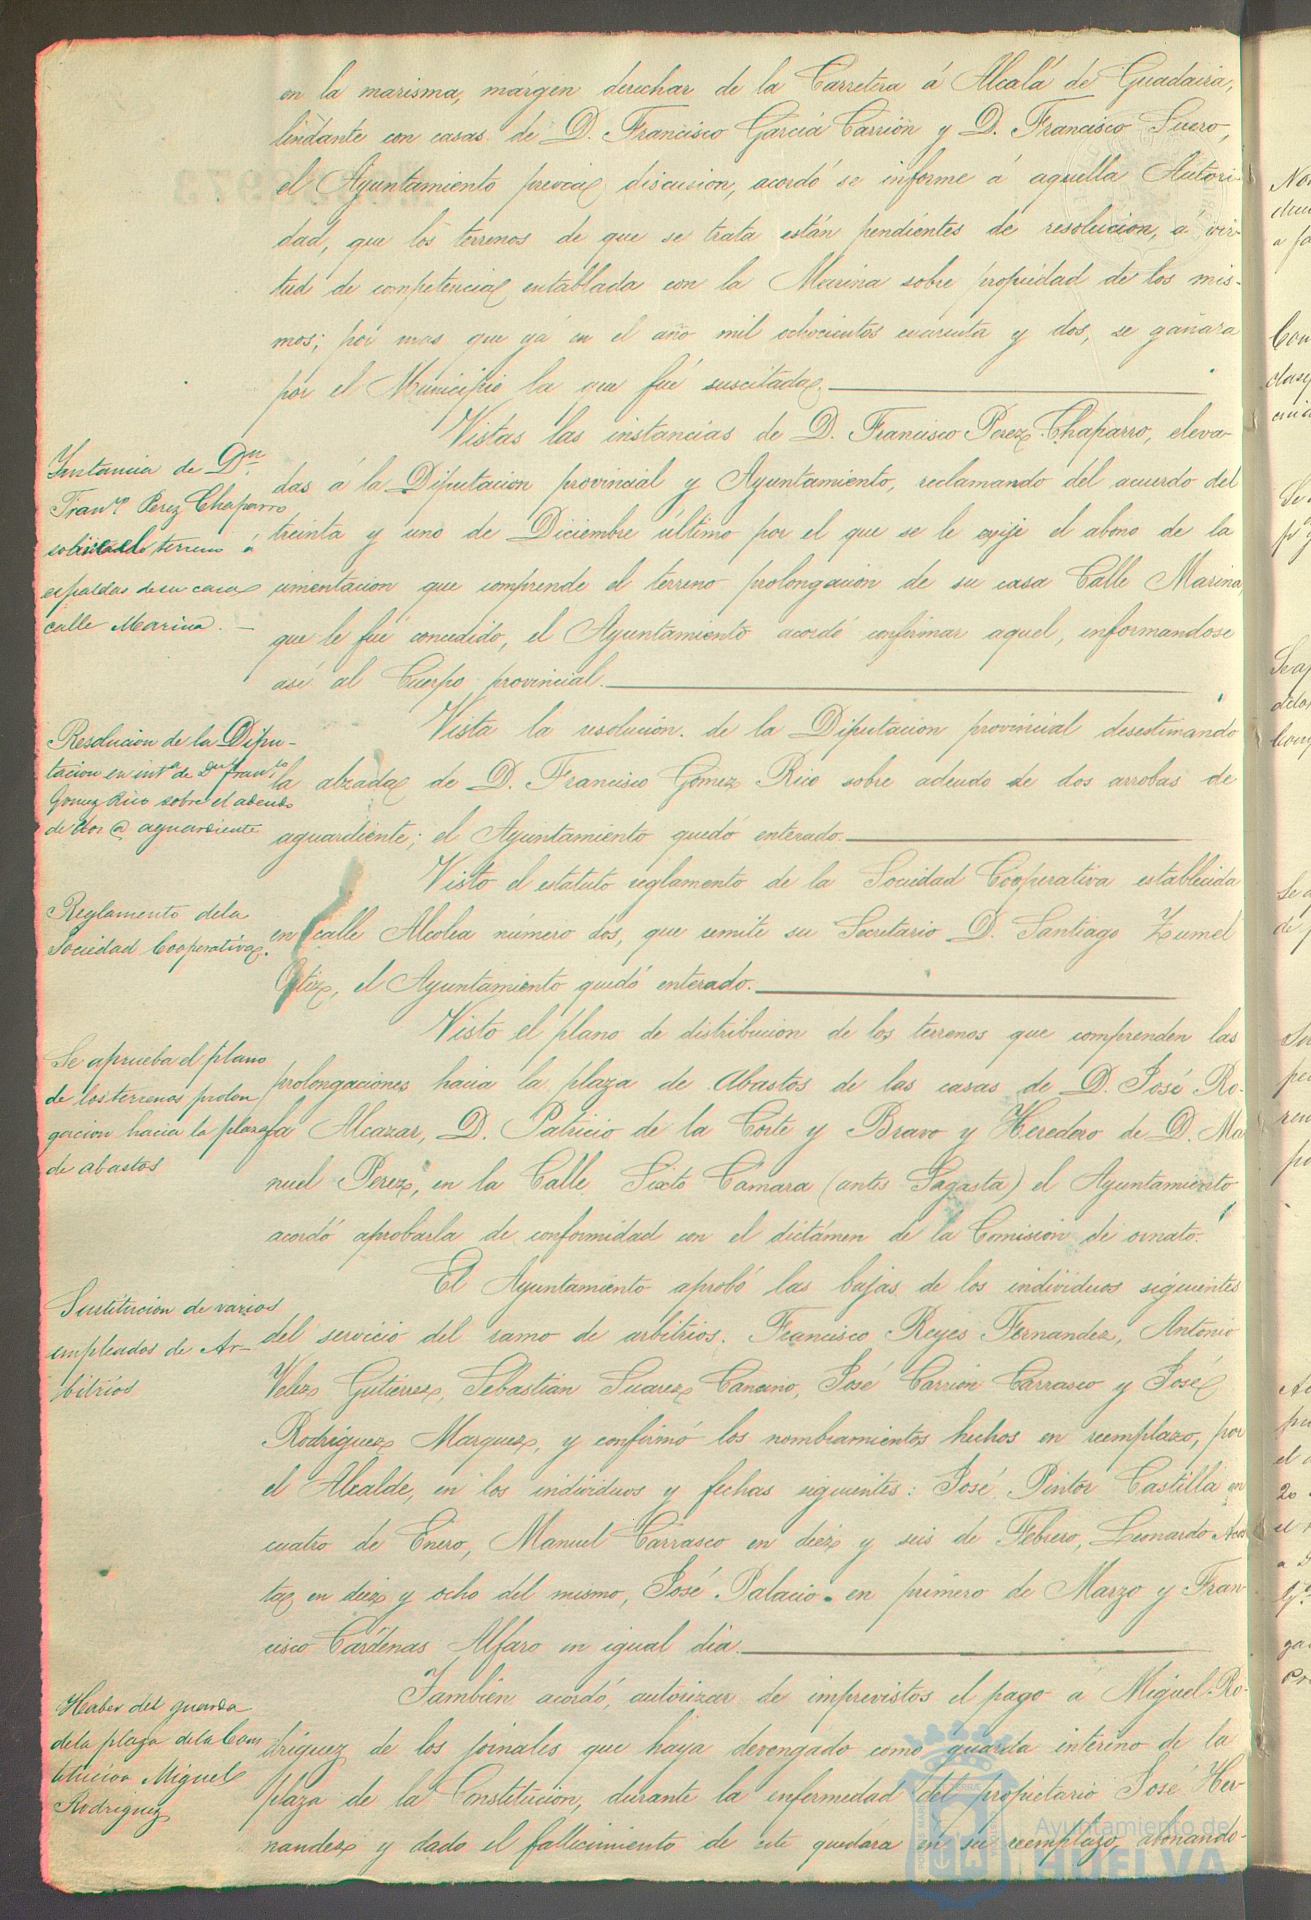 en la marisma, márgen derechar de la Carretera á Alcalá de Guadaira,
lindante con casas de D. Francisco García Carrión y D. Francisco Suero,
el Ayuntamiento previa discusion, acordó se informe á aquella Autori-
dad, que los terrenos de que se trata están pendientes de resolucion, á vir-
tud de competencia entablada con la Marina sobre propiedad de los mis-
mos; por mas que ya en el año mil ochocientos cuarenta y dos, se ganara
por el Municipio la que fué suscitada.
Instancia de Dn
Franco Perez Chaparro
solicitando terreno á
espaldas de su casa
calle Marina.
Vistas las instancias de D. Francisco Perez Chaparro, eleva-
das á la Diputacion provincial y Ayuntamiento, reclamando del acuerdo del
treinta y uno de Diciembre último por el que se le exije el abono de la
cimentacion que comprende el terreno prolongacion de su casa Calle Marina,
que le fué concedido, el Ayuntamiento acordó confirmar aquel, informandose
así al Cuerpo provincial.
Resolucion de la Dipu-
tacion en inta de Dn Franco
Gomez Rico sobre el adeudo
de dos @ aguardiente
Vista la resolucion de la Diputacion provincial desestimando
la alzada de D. Francisco Gómez Rico sobre adeudo de dos arrobas de
aguardiente; el Ayuntamiento quedó enterado.
Reglamento de la
Sociedad Cooperativa.
Visto el estatuto reglamento de la Sociedad Cooperativa establecida
en calle Alcolea número dos, que remite su Secretario D. Santiago Zumel
Ortiz, el Ayuntamiento quedó enterado.
Se aprueba el plano
de los terrenos prolon
gacion hacia la plaza
de abastos
Visto el plano de distribucion de los terrenos que comprenden las
prolongaciones hacia la plaza de Abastos de las casas de D. José Ro-
fa Alcazar, D. Patricio de la Corte y Bravo y Heredero de D. Ma
nuel Perez, en la Calle Sixto Cámara (antes Sagasta) el Ayuntamiento
acordó aprobarla de conformidad con el dictámen de la Comision de ornato.
Sustitucion de varios
empleados de Ar-
bitrios
El Ayuntamiento aprobó las bajas de los individuos siguientes
del servicio del ramo de arbitrios. Francisco Reyes Fernandez, Antonio
Velez Gutierrez, Sebastian Suarez Canano, José Carrión Carrasco y José
Rodriguez Marquez, y confirmó los nombramientos hechos en reemplazo, por
el Alcalde, en los individuos y fechas siguientes: José Pintor Castilla en
cuatro de Enero, Manuel Carrasco en diez y seis de Febrero, Leonardo Acos
ta en diez y ocho del mismo, José Palacio en primero de Marzo y Fran-
cisco Cárdenas Alfaro en igual dia.
Haber del guarda
de la plaza de la Cons
titucion Miguel
Rodriguez
Tambien acordó, autorizar de imprevistos el pago á Miguel Ro-
driguez de los jornales que haya devengado como guarda interino de la
plaza de la Constitucion, durante la enfermedad del propietario José Her-
nandez y dado el fallecimiento de este quedára en su reemplazo, abonando-
Ayuntamiento de
HUELVA